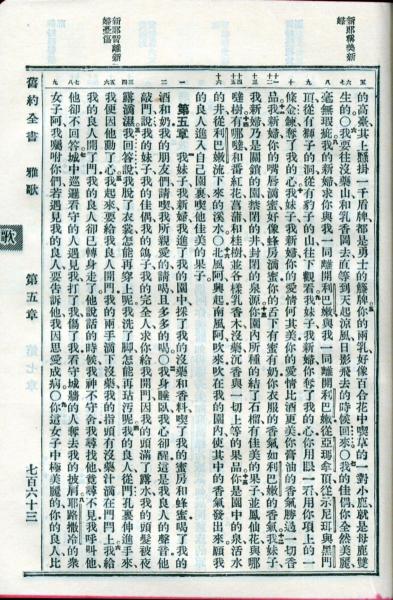 新郎稱美新婦
新郎暫離新婦憂傷
的高臺其上懸掛一千盾牌都是勇士的籐牌你的兩乳好像百合花中喫草的一對小鹿就是母鹿雙
生的○我要往沒藥山和乳香岡去直等到天起涼風日影飛去的時候回來○我的佳偶你全然美麗
毫無瑕疵我的新婦求你與我一同離開利巴嫩與我一同離開利巴嫩從亞瑪拿頂從示尼珥與黑門
頂從有獅子的洞從有豹子的山往下觀看我妹子我新婦你奪了我的心你用眼一看用你項上的一
條金鍊奪了我的心我妹子我新婦你的愛情何其美你的愛情比酒更美你膏油的香氣勝過一切香
品我新婦你的嘴唇滴蜜好像蜂房滴蜜你的舌下有蜜有奶你衣服的香氣如利巴嫩的香氣我妹子
我新婦乃是關鎖的園禁閉的井封閉的泉源你園內所種的結了石榴有佳美的果子並鳳仙花與哪
噠樹有哪噠和番紅花菖蒲和桂樹並各樣乳香木沒藥沉香與一切上等的果品你是園中的泉活水
的井從利巴嫩流下來的溪水○北風阿興起南風阿吹來吹在我的園內使其中的香氣發出來願我
的良人進入自己園裏喫他佳美的果子
第五章 我妹子我新婦我進了我的園中採了我的沒藥和香料喫了我的蜜房和蜂蜜喝了我的
酒和奶我的朋友們請喫我所親愛的請喝且多多的喝○我身睡臥我心卻醒這是我良人的聲音他
敲門說我的妹子我的佳偶我的鴿子我的完全人求你給我開門因我的頭滿了露水我的頭髮被夜
露滴濕我回答說我脫了衣裳怎能再穿上呢我洗了脚怎能再玷污呢我的良人從門孔裏伸進手來
我便因他動了心我起來要給我良人開門我的兩手滴下沒藥我的指頭有沒藥汁滴在門閂上我給
我的良人開了門我的良人卻已轉身走了他說話的時候我神不守舍我尋找他竟尋不見我呼叫他
他卻不回答城中巡邏看守的人遇見我打了我傷了我看守城牆的人奪去我的披肩耶路撒冷的衆
女子阿我囑咐你們若遇見我的良人要告訴他我因思愛成病○你這女子中極美麗的你的良人比
舊約全書 雅歌 第五章 七百六十三
歌